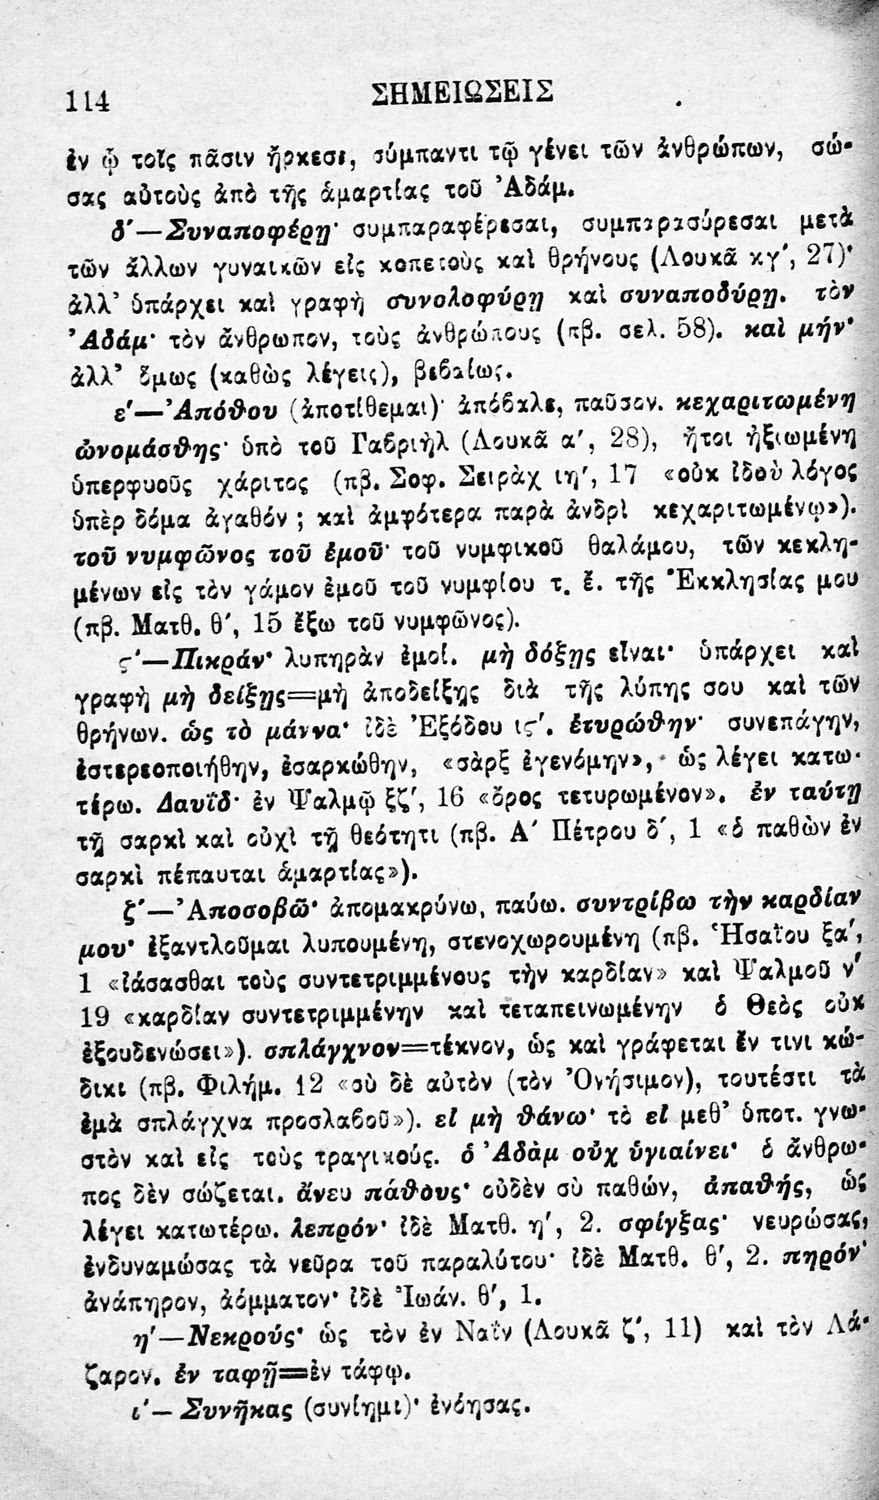 114
ΣΗΜΕΙΩΣΕΙΣ
ἐν ᾧ τοῖς πᾶσιν ἤρκεσε, σύμπαντι τῷ γένει τῶν ἀνθρώπων, σώ-
σας αὐτοὺς ἀπὸ τῆς ἁμαρτίας τοῦ Ἀδάμ.
δ΄—Συναποφέρῃ· συμπαραφέρεσαι, συμπαρασύρεσαι μετὰ
τῶν ἄλλων γυναικῶν εἰς κοπετοὺς καὶ θρήνους (Λουκᾶ κγ΄, 27)·
ἀλλ’ ὑπάρχει καὶ γραφὴ συνολοφύρῃ καὶ συναποδύρῃ. τὸν
Ἀδάμ· τὸν ἄνθρωπον, τοὺς ἀνθρώπους (πβ. σελ. 58). καὶ μήν·
ἀλλ’ ὅμως (καθὼς λέγεις), βεβαίως.
ε΄—Ἀπόθου (ἀποτίθεμαι)· ἀπόβαλε, παῦσον. κεχαριτωμένη
ὠνομάσθης· ὑπὸ τοῦ Γαβριὴλ (Λουκᾶ α΄, 28), ἤτοι ἠξιωμένη
ὑπερφυοῦς χάριτος (πβ. Σοφ. Σειρὰχ ιη΄, 17 «οὐκ ἰδοὺ λόγος
ὑπὲρ δόμα ἀγαθόν ; καὶ ἀμφότερα παρὰ ἀνδρὶ κεχαριτωμένῳ»).
τοῦ νυμφῶνος τοῦ ἐμοῦ· τοῦ νυμφικοῦ θαλάμου, τῶν κεκλη-
μένων εἰς τὸν γάμον ἐμοῦ τοῦ νυμφίου τ. ἔ. τῆς Ἐκκλησίας μου
(πβ. Ματθ. θ΄, 15 ἔξω τοῦ νυμφῶνος).
ϛ΄—Πικράν· λυπηρὰν ἐμοί. μὴ δόξῃς εἶναι· ὑπάρχει καὶ
γραφὴ μὴ δείξῃς=μὴ ἀποδείξῃς διὰ τῆς λύπης σου καὶ τῶν
θρήνων. ὡς τὸ μάννα· ἰδὲ Ἐξόδου ις΄. ἐτυρώθην· συνεπάγην,
ἐστερεοποιήθην, ἐσαρκώθην, «σὰρξ ἐγενόμην», ὡς λέγει κατω-
τέρω. Δαυῒδ· ἐν Ψαλμῷ ξζ΄, 16 «ὄρος τετυρωμένον». ἐν ταύτῃ
τῇ σαρκὶ καὶ οὐχὶ τῇ θεότητι (πβ. Α΄ Πέτρου δ΄, 1 «ὁ παθὼν ἐν
σαρκὶ πέπαυται ἁμαρτίας»).
ζ΄—Ἀποσοβῶ· ἀπομακρύνω, παύω. συντρίβω τὴν καρδίαν
μου· ἐξαντλοῦμαι λυπουμένη, στενοχωρουμένη (πβ. Ἡσαΐου ξα΄,
1 «ἰάσασθαι τοὺς συντετριμμένους τὴν καρδίαν» καὶ Ψαλμοῦ ν΄
19 «καρδίαν συντετριμμένην καὶ τεταπεινωμένην ὁ Θεὸς οὐκ
ἐξουδενώσει»). σπλάγχνον=τέκνον, ὡς καὶ γράφεται ἔν τινι κώ-
δικι (πβ. Φιλήμ. 12 «σὺ δὲ αὐτὸν (τὸν Ὀνήσιμον), τουτέστι τὰ
ἐμὰ σπλάγχνα προσλαβοῦ»). εἰ μὴ θάνω· τὸ εἰ μεθ’ ὑποτ. γνω-
στὸν καὶ εἰς τοὺς τραγικούς. ὁ Ἀδὰμ οὐχ ὑγιαίνει· ὁ ἄνθρω-
πος δὲν σώζεται. ἄνευ πάθους· οὐδὲν σὺ παθών, ἀπαθής, ὡς
λέγει κατωτέρω. λεπρόν· ἰδὲ Ματθ. η΄, 2. σφίγξας· νευρώσας,
ἐνδυναμώσας τὰ νεῦρα τοῦ παραλύτου· ἰδὲ Ματθ. θ΄, 2. πηρόν·
ἀνάπηρον, ἀόμματον· ἰδὲ Ἰωάν. θ΄, 1.
η΄—Νεκρούς· ὡς τὸν ἐν Ναῒν (Λουκᾶ ζ΄, 11) καὶ τὸν Λά-
ζαρον. ἐν ταφῇ=ἐν τάφῳ.
ι΄— Συνῆκας (συνίημι)· ἐνόησας.